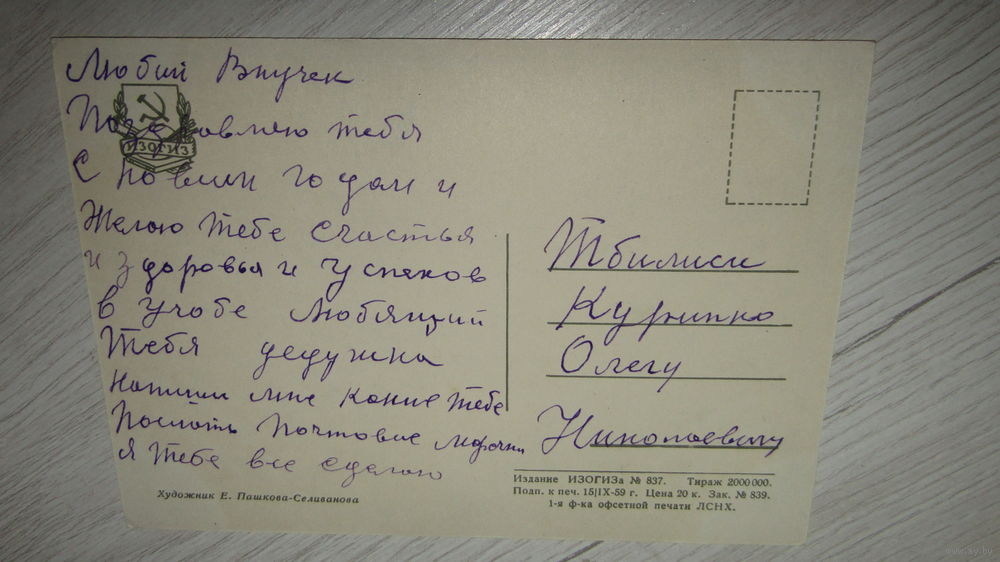 Любий Внучек
Поздровляю тебя
С новим годом и
Желаю тебе счастья
и здоровья и Успехов
в учобе Любящий
Тебя дедушка
Напиши мне Какие тебе
Послать Почтовие марочки
я Тебе все сделаю
ИЗОГИЗ
Художник Е. Пашкова-Селиванова
Тбилиси
Курипко
Олегу
Николаевичу
Издание ИЗОГИЗа № 837. Тираж 2000000.
Подп. к печ. 15/IX-59 г. Цена 20 к. Зак. № 839.
1-я ф-ка офсетной печати ЛСНХ.
www.ay.by